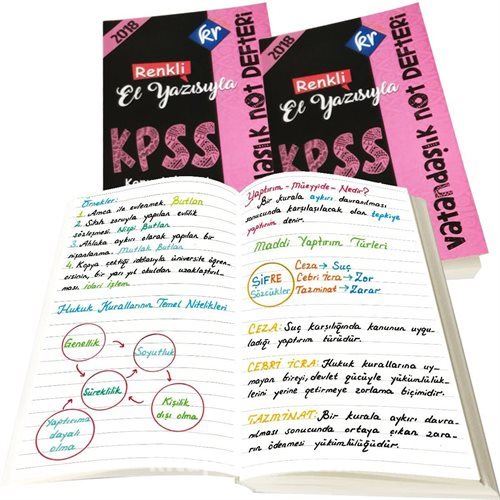 2018
kr
Renkli
El Yazısıyla
KPSS
VATANDAŞLIK NOT DEFTERİ
2018
kr
Renkli
El Yazısıyla
KPSS
Örnekler:
1. Amca ile evlenmek. Butlan
2. Silah zoruyla yapılan evlilik
sözleşmesi. Nispi Butlan
3. Ahlaka aykırı olarak yapılan bir
nişanlanma. Mutlak Butlan
4. Kopya çektiği iddiasıyla üniversite öğren-
cisinin, bir yarı yıl okuldan uzaklaştırıl-
ması. İdari İşlem
Hukuk Kurallarının Temel Nitelikleri
Genellik
Soyutluk
Süreklilik
Kişilik
dışı olma
Yaptırıma
dayalı
olma
Yaptırım - Müeyyide - Nedir?
Bir kurala aykırı davranılması
sonucunda karşılaşılacak olan tepkiye
yaptırım denir.
Maddi Yaptırım Türleri
ŞİFRE
Sözcükler
Ceza → Suç
Cebri İcra → Zor
Tazminat → Zarar
CEZA: Suç karşılığında kanunun uygu-
ladığı yaptırım türüdür.
CEBRİ İCRA: Hukuk kurallarına uy-
mayan bireyi, devlet gücüyle yükümlülük-
lerini yerine getirmeye zorlama biçimidir.
TAZMİNAT: Bir kurala aykırı davra-
nılması sonucunda ortaya çıkan zara-
rın ödenmesi yükümlülüğüdür.